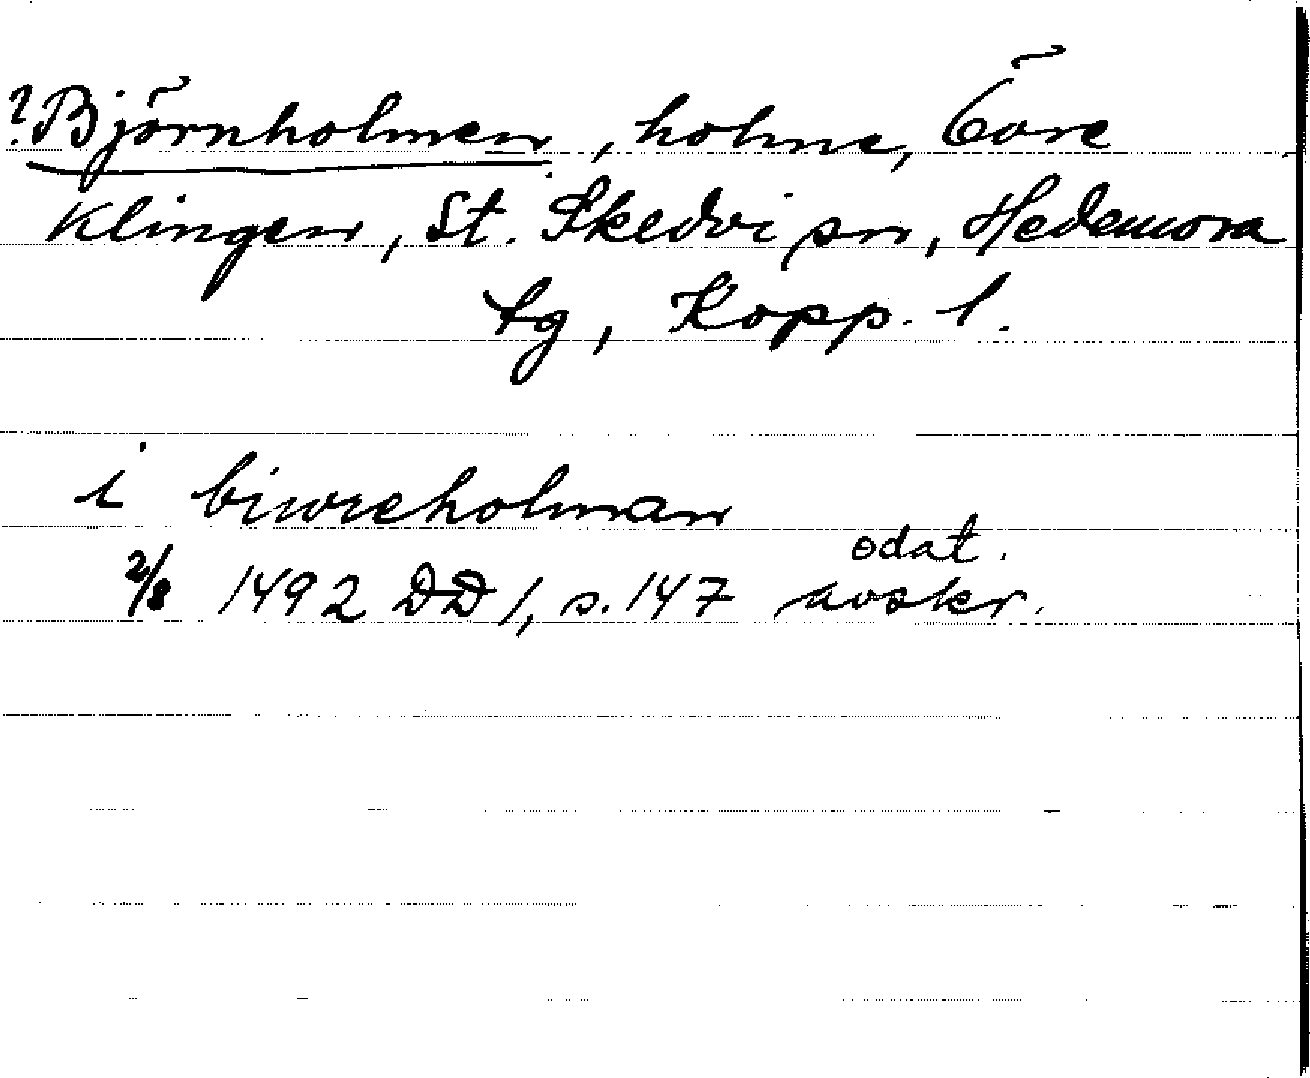 ?Björnholmen, holme, Övre
Klingen, St. Skedvi sn, Hedemora
tg, Kopp. l.
i biwreholman
2/8 1492 DD 1, s. 147 odat. avskr.